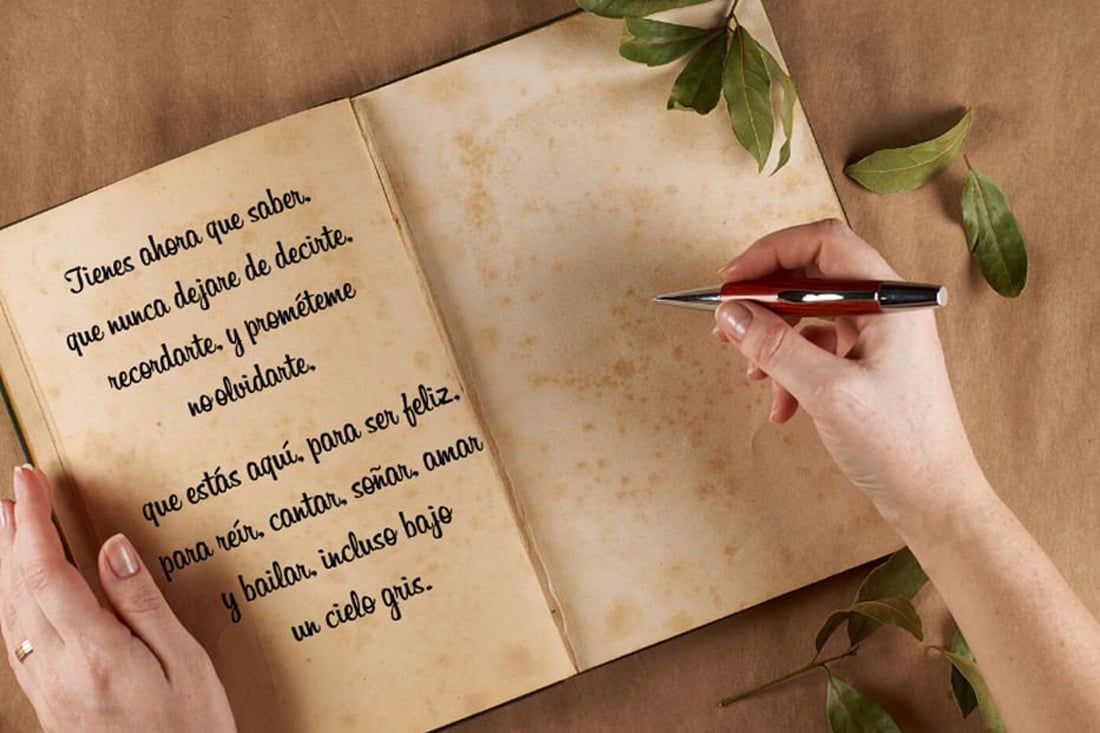 Tienes ahora que saber,
que nunca dejare de decirte,
recordarte, y prométeme
no olvidarte,
que estás aquí, para ser feliz,
para reír, cantar, soñar, amar
y bailar, incluso bajo
un cielo gris.